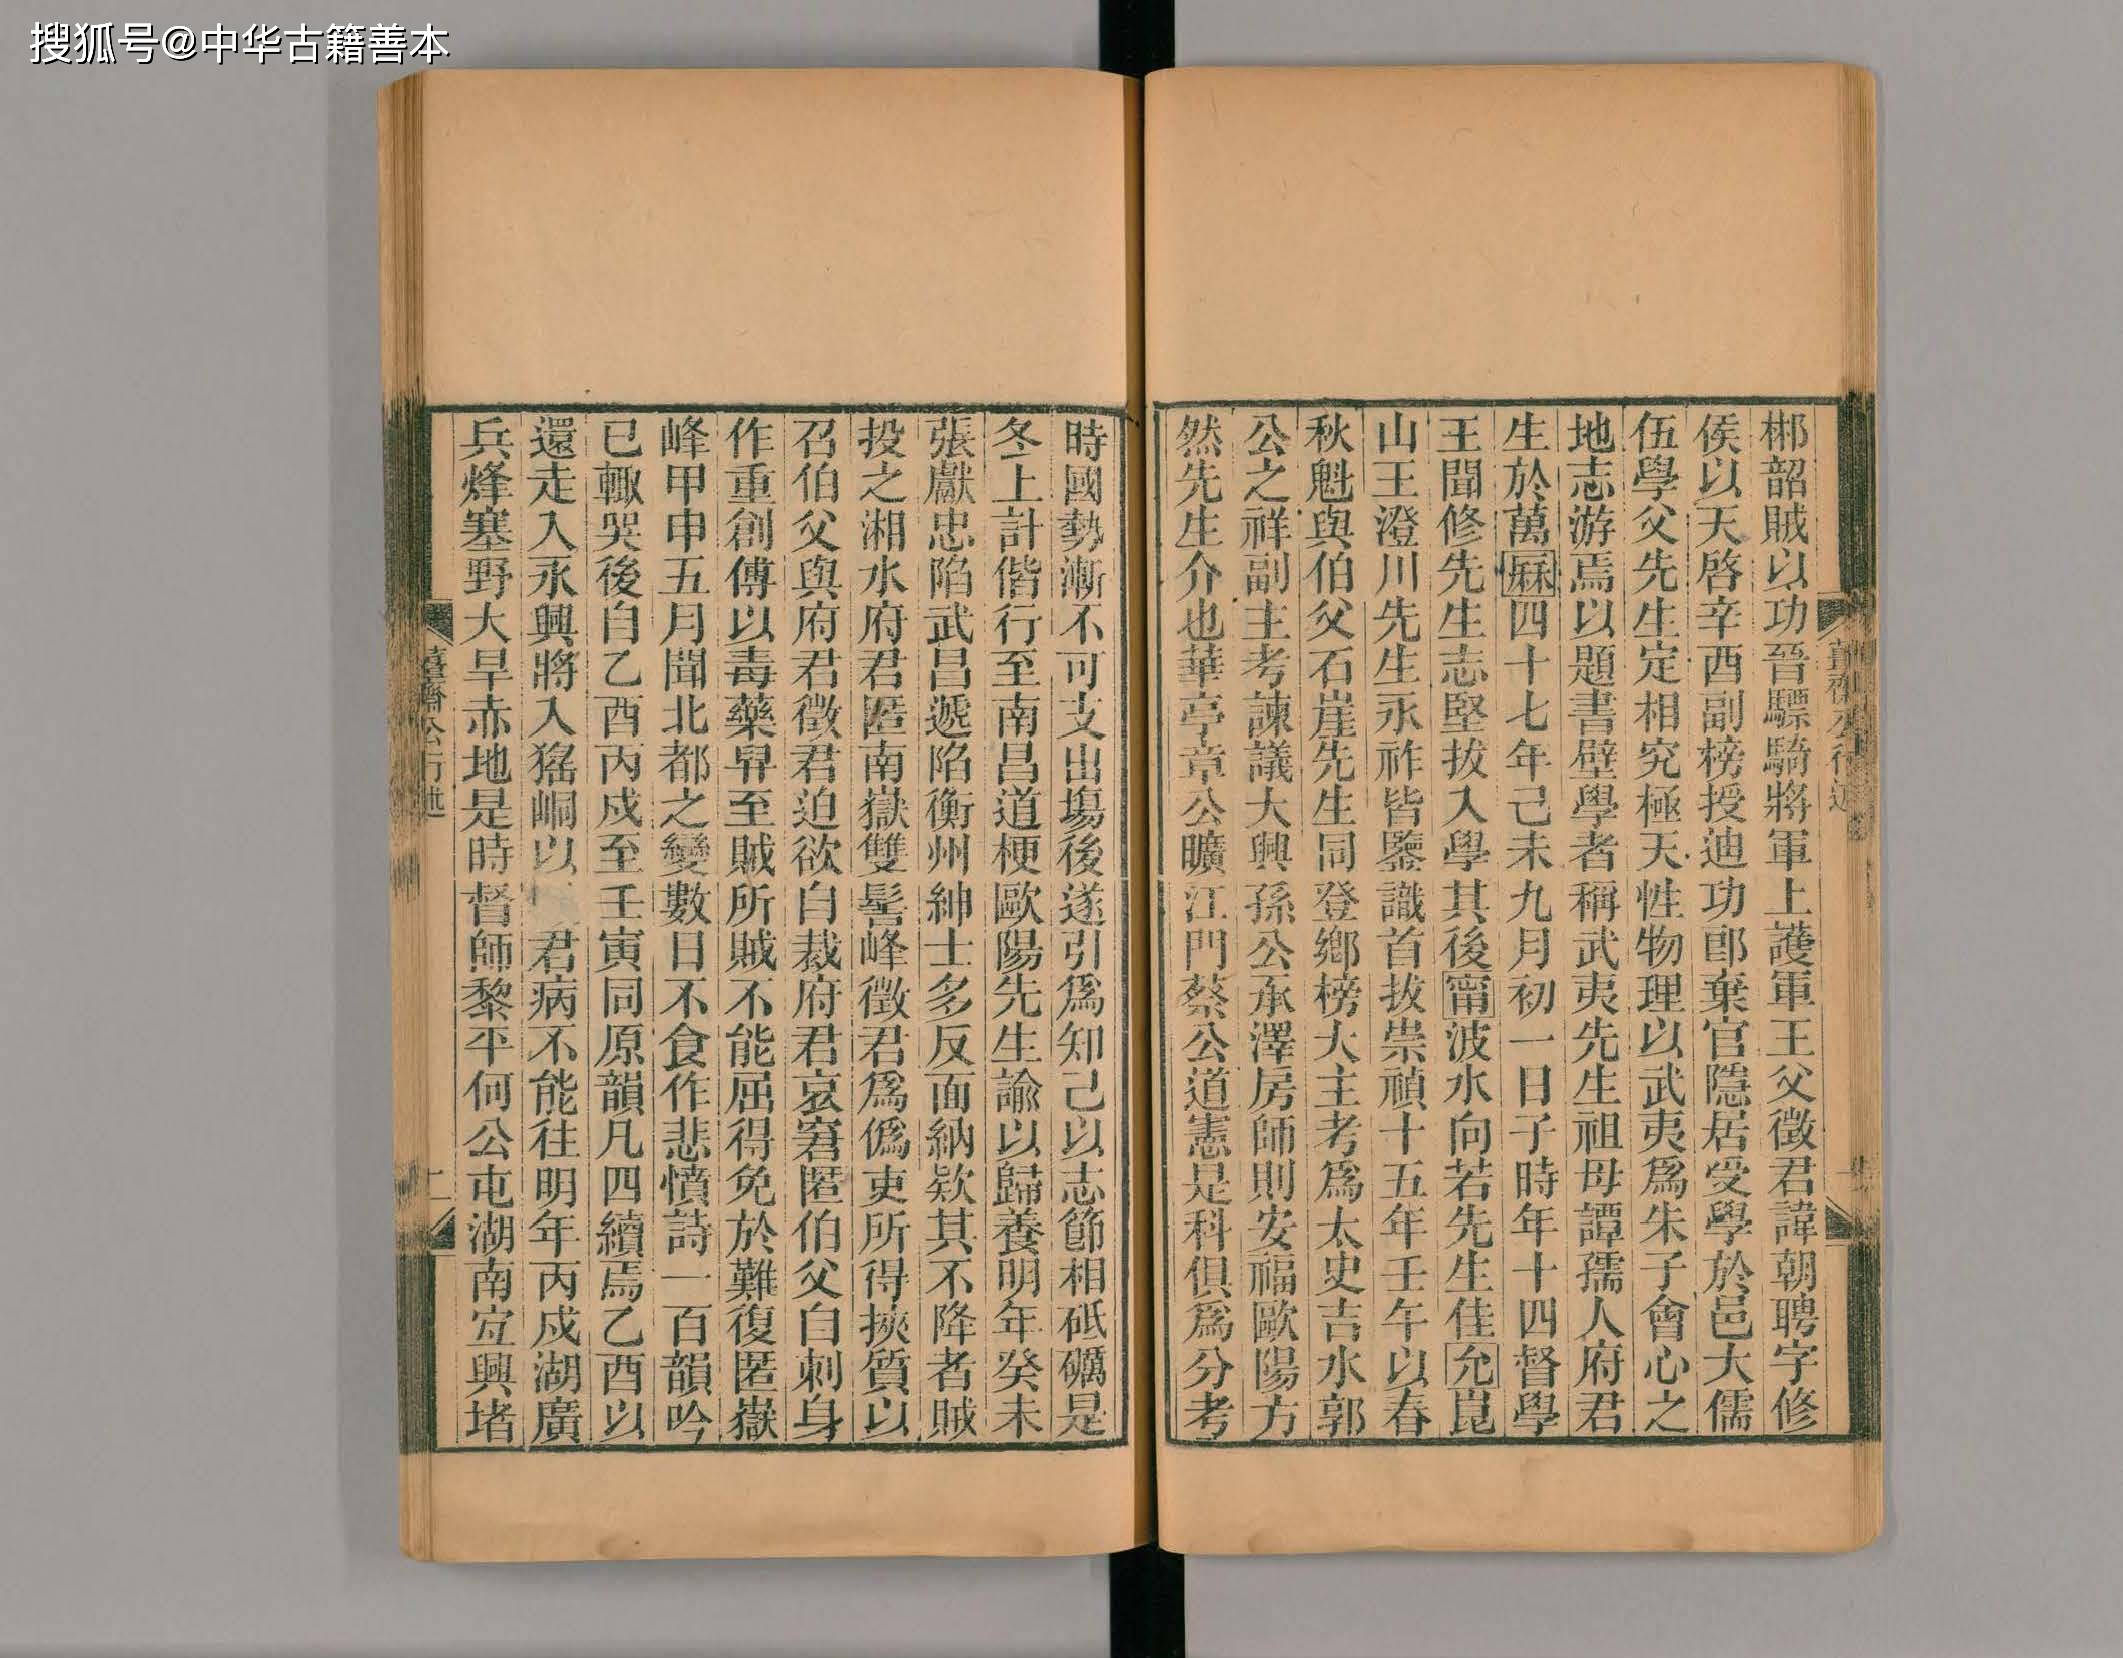 搜狐号@中华古籍善本
郴韶賊以功晉驃騎將軍上護軍王父徵君諱朝聘字修
侯以天啓辛酉副榜授迪功郎棄官隱居受學於邑大儒
伍學父先生定相究極天性物理以武夷爲朱子會心之
地志游焉以題書壁學者稱武夷先生祖母譚孺人府君
生於萬厤四十七年己未九月初一日子時年十四督學
王聞修先生志堅拔入學其後甯波水向若先生佳允崑
山王澄川先生永祚皆鑒識首拔崇禎十五年壬午以春
秋魁與伯父石崖先生同登鄉榜大主考爲太史吉水郭
公之祥副主考諫議大興孫公承澤房師則安福歐陽方
然先生介也華亭章公曠江門蔡公道憲是科俱爲分考
時國勢漸不可支出塲後遂引爲知己以志節相砥礪是
冬上計偕行至南昌道梗歐陽先生諭以歸養明年癸未
張獻忠陷武昌遞陷衡州紳士多反面納欵其不降者賊
投之湘水府君匿南嶽雙髻峰徵君爲僞吏所得挾質以
召伯父與府君徵君迫欲自裁府君哀窘匿伯父自刺身
作重創傅以毒藥舁至賊所賊不能屈得免於難復匿嶽
峰甲申五月聞北都之變數日不食作悲憤詩一百韻吟
已輙哭後自乙酉丙戍至壬寅同原韻凡四續焉乙酉以
還走入永興將入猺峒以 君病不能往明年丙戍湖廣
兵烽塞野大旱赤地是時督師黎平何公屯湖南宜興堵
薑齋公行述
二